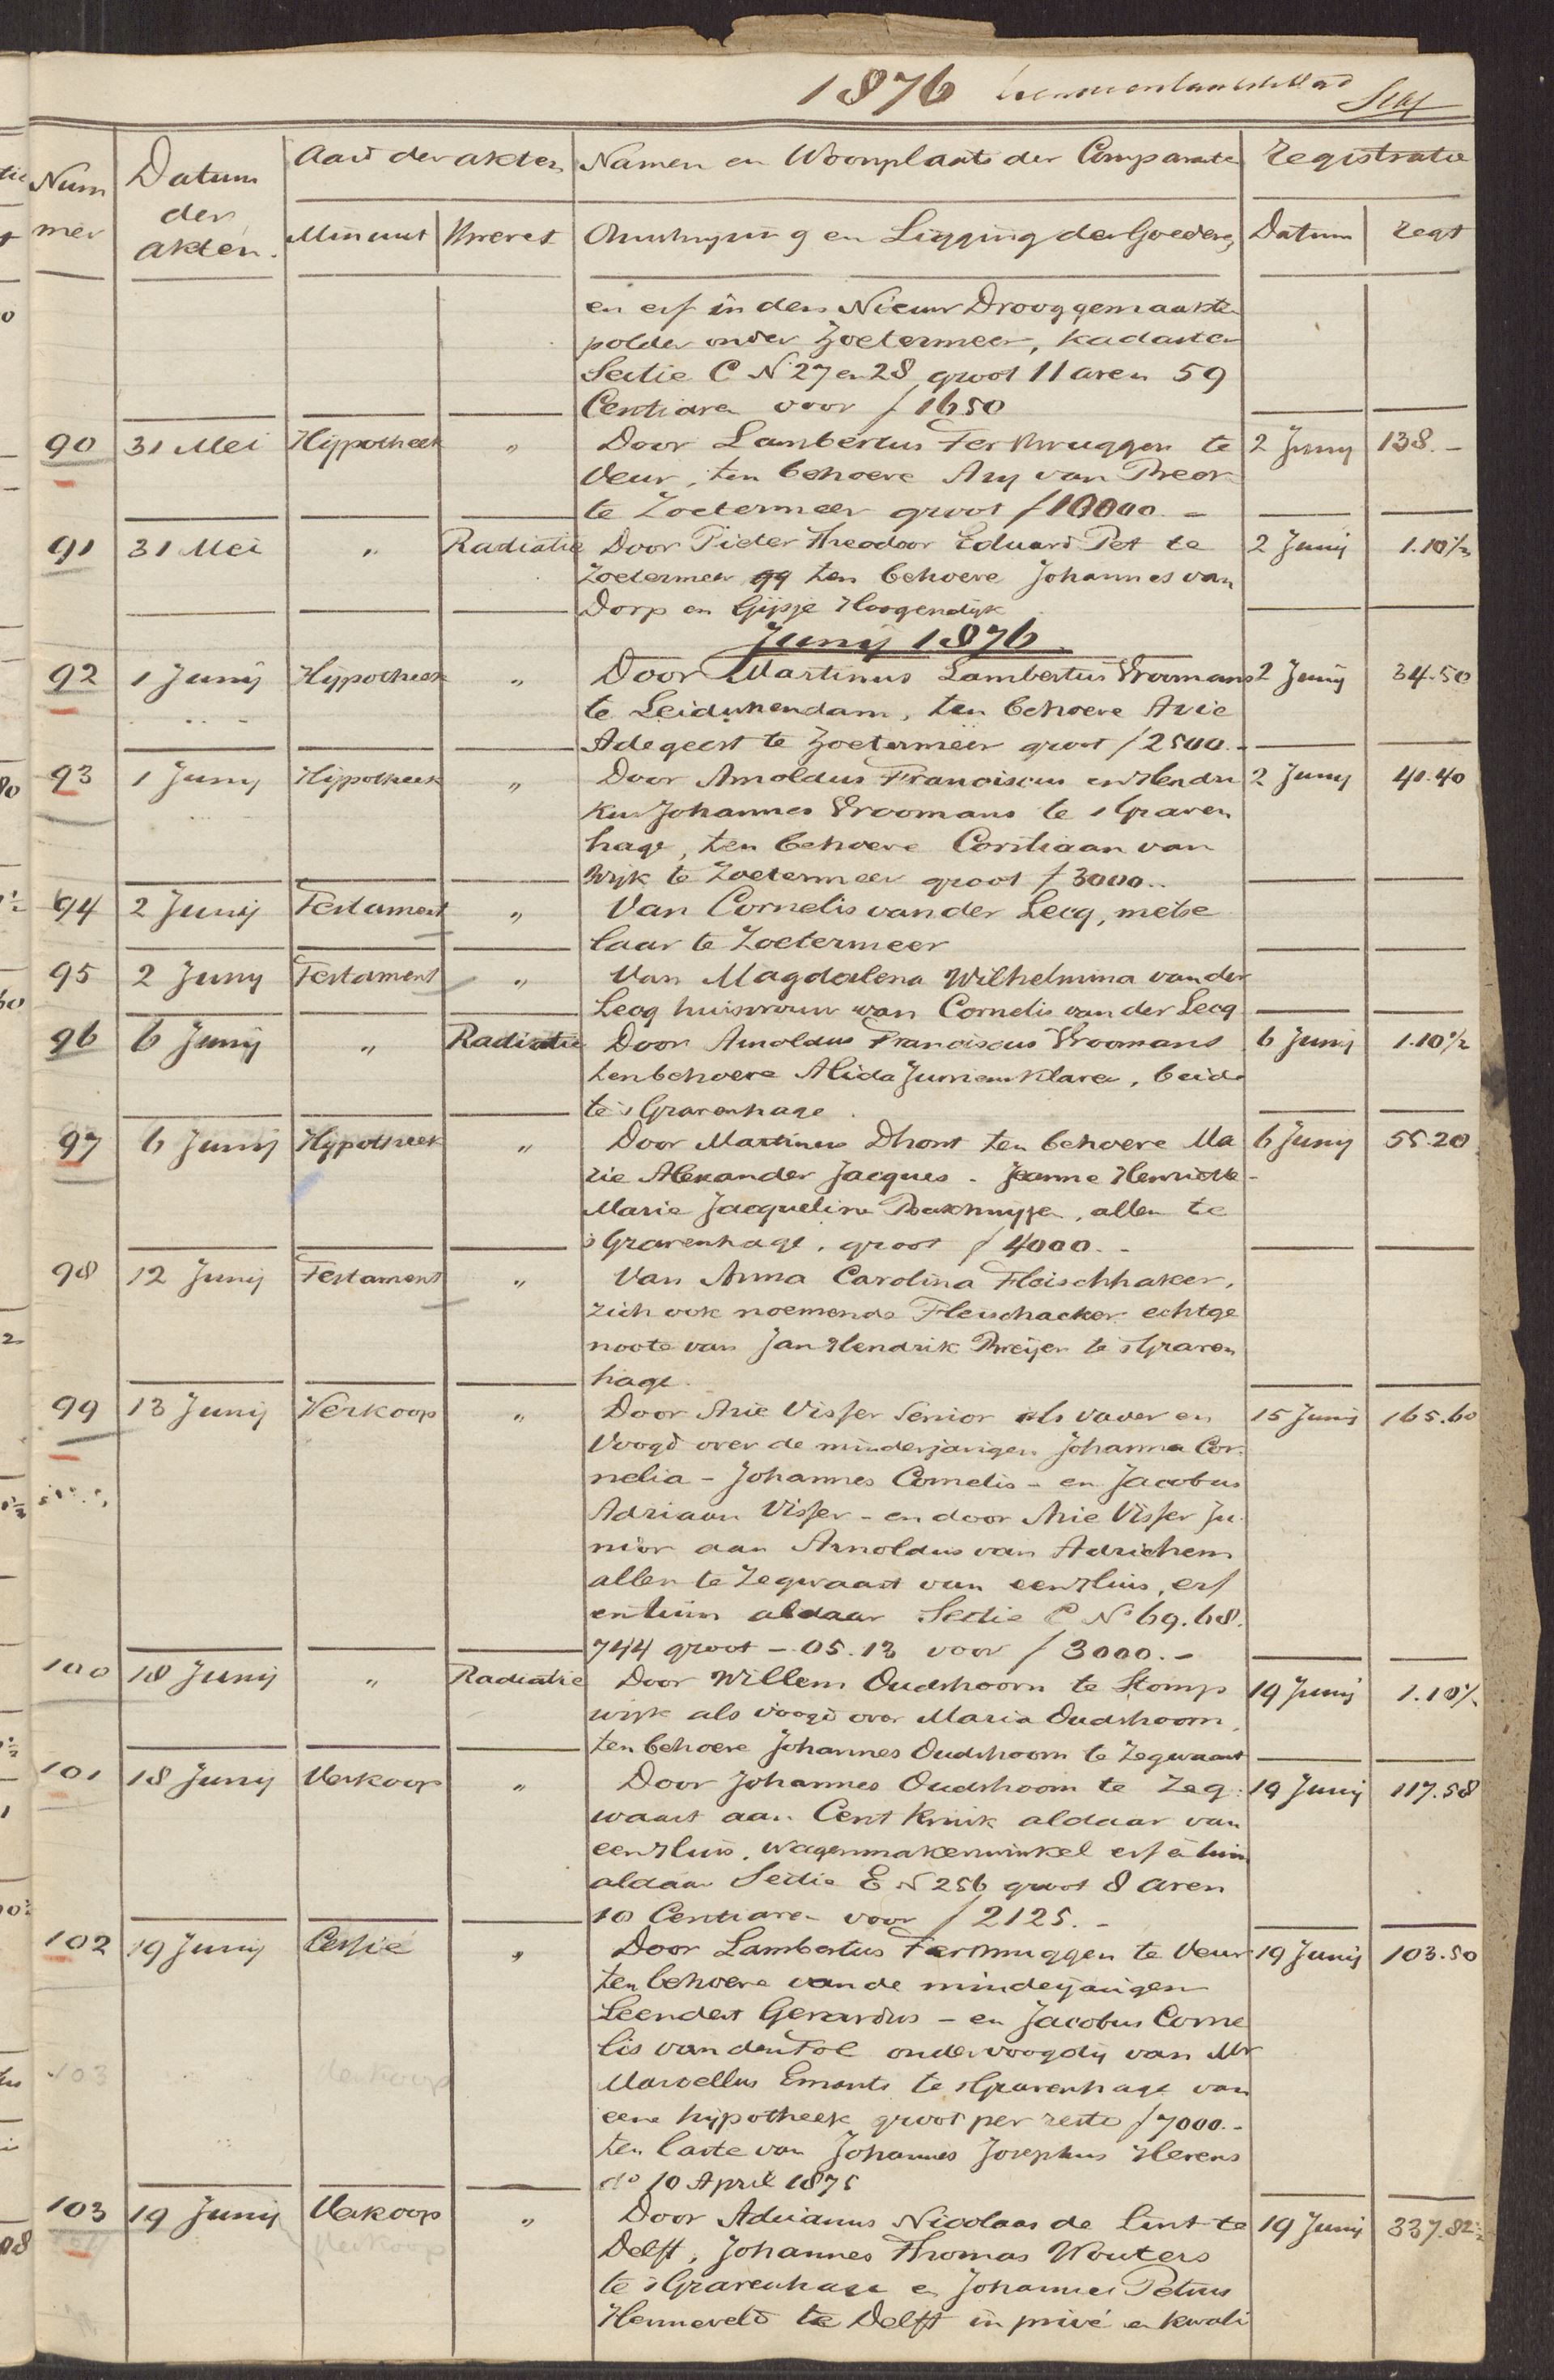 1876
Num
mer
Datum
der
akten.
Aard der akten
Minuut Brevet
Namen en Woonplaats der Comparante
Omschrijving en Ligging der Goederen
Registratie
Datum Regt
en erf in den Nieuw Drooggemaakte
polder onder Zoetermeer, kadaster
Sectie C No 27 en 28 groot 11 aren 59
Centiaren voor f 1650
90 31 Mei Hypotheek " Door Lambertus Ter Bruggen te 2 Junij 138.-
Veur, ten behoeve Ary van
te Zoetermeer groot f 10000.-
91 31 Mei " Radiatie Door Pieter Theodoor Eduard Pet te 2 Junij 1.10½
Zoetermeer qq ten behoeve Johannes van
Dorp en Gijsje Hoogendijk
Junij 1876.
92 1 Junij Hypotheek " Door Martinus Lambertus Vroomans 2 Junij 34.50
te Leidschendam, ten behoeve Arie
Adegeest te Zoetermeer groot f 2500.-
93 1 Junij Hypotheek " Door Arnoldus Franciscus en Hendri 2 Junij 41.40
kus Johannes Vroomans te 's Graven
hage, ten behoeve Corstiaan van
Wijk te Zoetermeer groot f 3000..
94 2 Junij Testament " Van Cornelis van der Lecq, metse
laar te Zoetermeer
95 2 Junij Testament " Van Magdalena Wilhelmina van der
Lecq huisvrouw van Cornelis van der Lecq
96 6 Junij " Radiatie Door Arnoldus Franciscus Vroomans 6 Junij 1.10½
ten behoeve Alida, beide
te 's Gravenhage.
97 6 Junij Hypotheek " Door Martinus Dhont ten behoeve Ma 6 Junij 55.20
rie Alexander Jacques - Jeanne Henriette -
Marie Jacqueline Bakhuyzen, allen te
's Gravenhage, groot f 4000.-
98 12 Junij Testament " Van Anna Carolina Fleischhaker,
zich ook noemende Fleischacker echtge
noote van Jan Hendrik Breijer te 's Graven
hage.
99 13 Junij Verkoop " Door Arie Visser Senior als vader en 15 Junij 165.60
Voogd over de minderjarigen Johanna Cor
nelia - Johannes Cornelis - en Jacobus
Adriaan Visser - en door Arie Visser Ju
nior aan Arnoldus van Adrichem
allen te Zegwaart van een Huis, erf
en tuin aldaar Sectie C No 69. 68.
744 groot - 05.13 voor f 3000.-
100 18 Junij " Radiatie Door Willem Oudshoorn te Stomp 19 Junij 1.10½
wijk als voogd over Maria Oudshoorn,
ten behoeve Johannes Oudshoorn te Zegwaart
101 18 Junij Verkoop " Door Johannes Oudshoorn te Zeg 19 Junij 117.58
waart aan Cent Kruik aldaar van
een Huis, wagenmakerswinkel erf & tuin
aldaar Sectie E No 256 groot 8 aren
10 Centiaren voor f 2125.-
102 19 Junij Cessie " Door Lambertus Ter Bruggen te Veur 19 Junij 103.50
ten behoeve van de minderjarigen
Leendert Gerardus - en Jacobus Corne
lis van den Tol onder voogdij van Mr
Marcellus Emants te 's Gravenhage van
eene hypotheek groot per resto f 7000.-
ten laste van Johannes Josephus Herens
do 10 April 1875
103 19 Junij Verkoop " Door Adrianus Nicolaas de Lint te 19 Junij 337.82½
Delft, Johannes Thomas Wouters
te 's Gravenhage en Johannes Petrus
Henneveld te Delft in privé en kwali